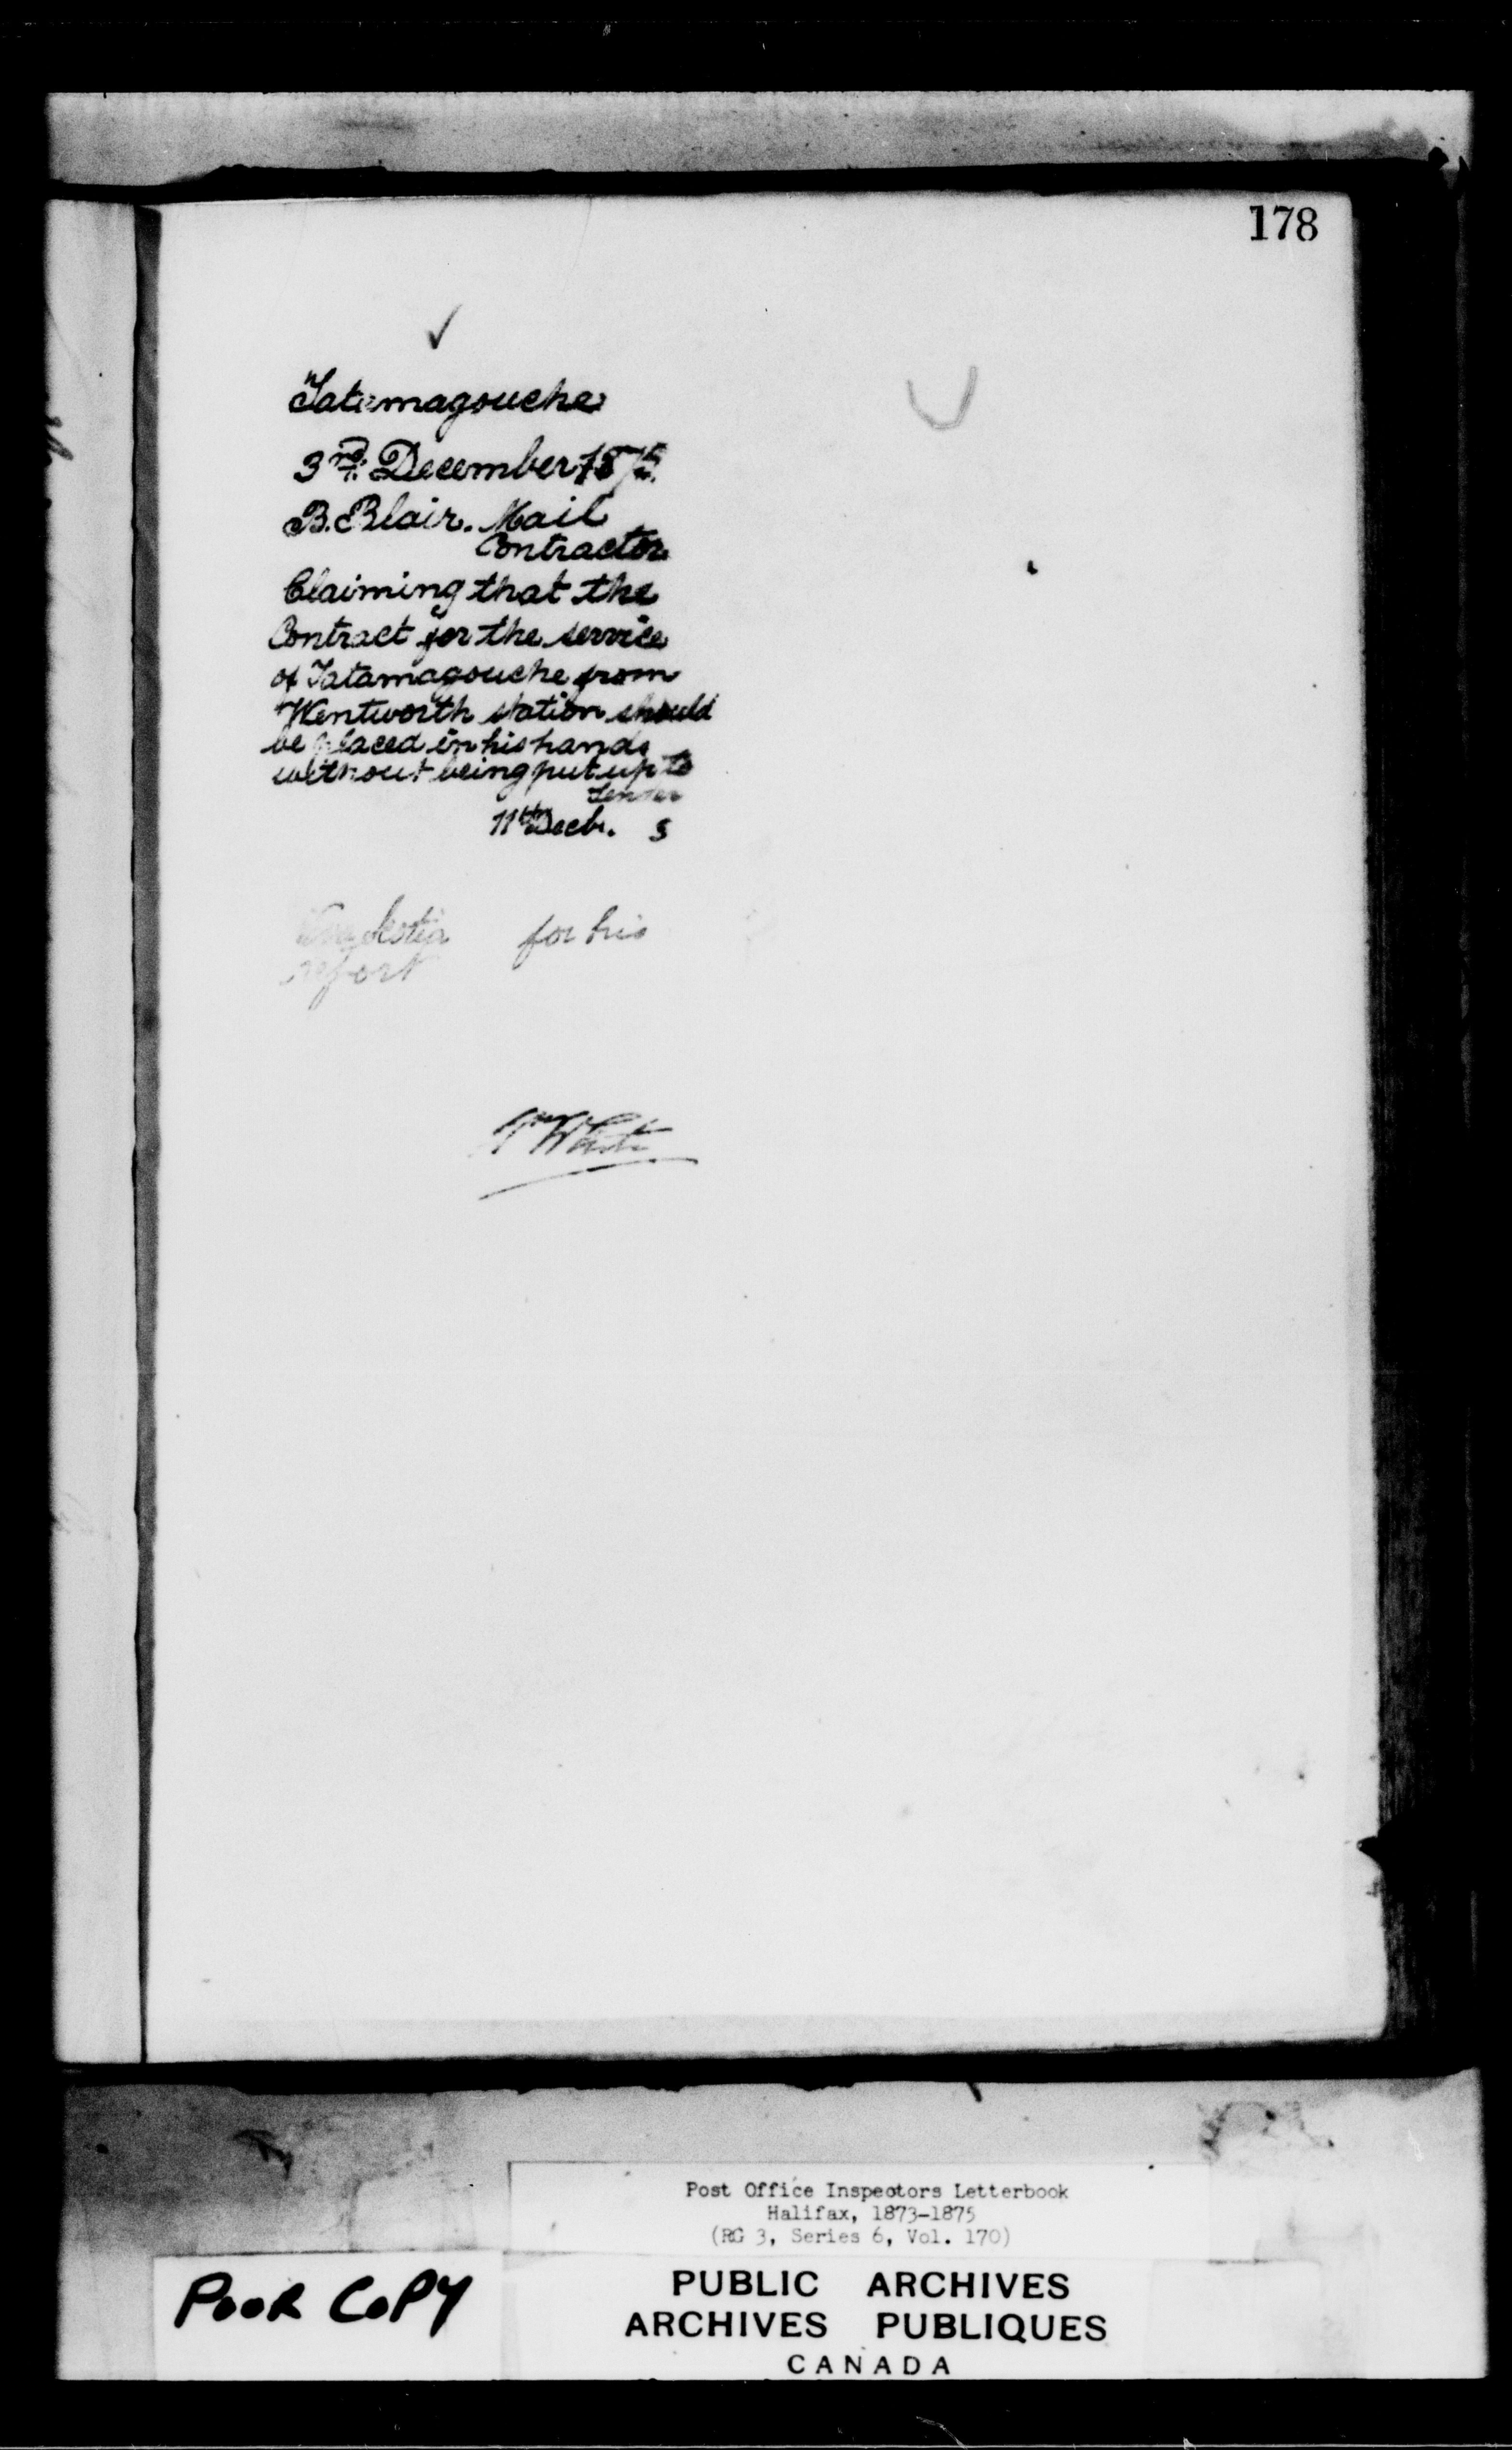 178
Tatamagouche
3rd. December 1875.
B. Blair. Mail
Contractor
Claiming that the
Contract for the service
of Tatamagouche from
Wentworth station should
be placed in his hands
without being put up to
Tender
11th Decbr. 5
Nova Scotia for his
report
White
Post Office Inspectors Letterbook
Halifax, 1873-1875
(RG 3, Series 6, Vol. 170)
POOR COPY
PUBLIC ARCHIVES
ARCHIVES PUBLIQUES
CANADA